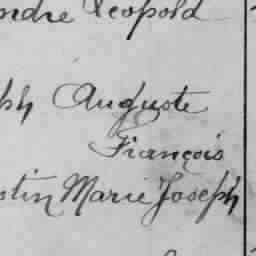 ndre Léopold
ph Auguste
François
stin Marie Joseph